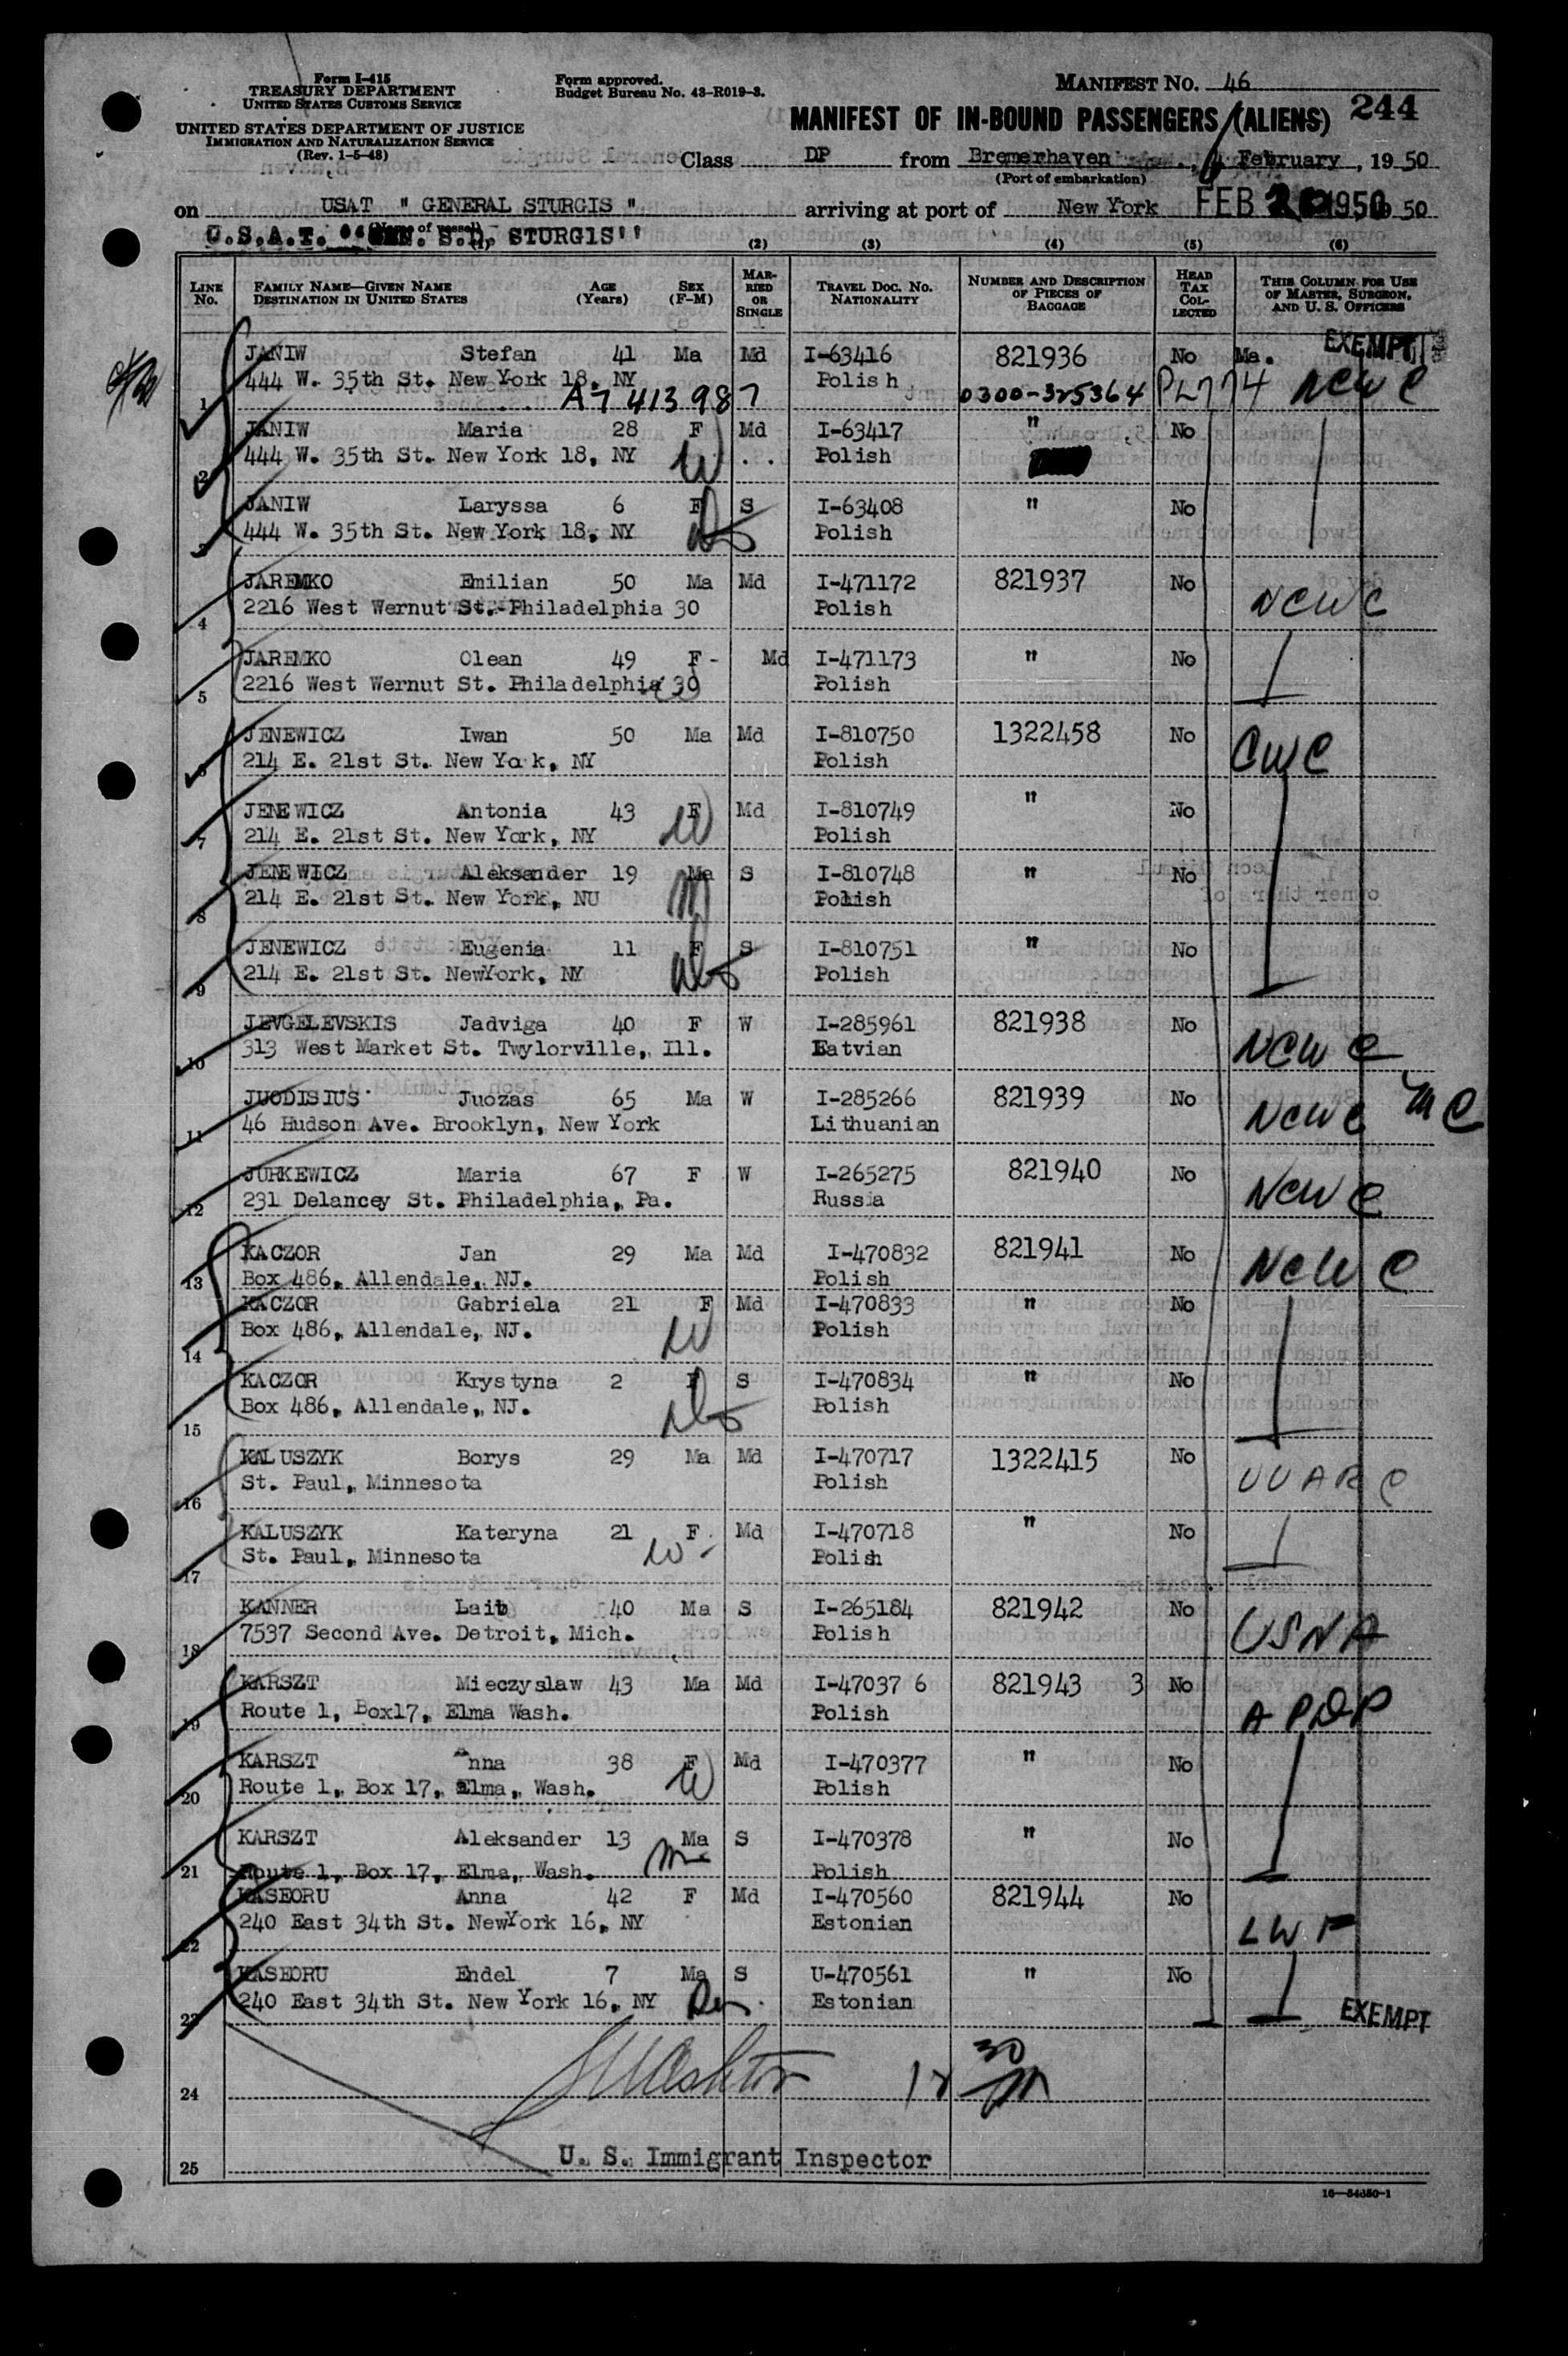 Form I-415
TREASURY DEPARTMENT
UNITED STATES CUSTOMS SERVICE
UNITED STATES DEPARTMENT OF JUSTICE
IMMIGRATION AND NATURALIZATION SERVICE
(Rev. 1-5-48)
Form approved.
Budget Bureau No. 43-R019-3.
MANIFEST NO. 46
MANIFEST OF IN-BOUND PASSENGERS (ALIENS) 244
Class DP from Bremerhaven, February, 1950
(Port of embarkation)
on USAT " GENERAL STURGIS " arriving at port of New York FEB 1950 50
U.S.A.T. STURGIS''
(2) (3) (4) (5) (6)
LINE No. FAMILY NAME—GIVEN NAME DESTINATION IN UNITED STATES AGE (Years) SEX (F-M) MARRIED OR SINGLE TRAVEL DOC. NO. NATIONALITY NUMBER AND DESCRIPTION OF PIECES OF BAGGAGE HEAD TAX COLLECTED THIS COLUMN FOR USE OF MASTER, SURGEON, AND U. S. OFFICERS
EXEMPT
1 JANIW Stefan 41 Ma Md I-63416 821936 No Ma.
444 W. 35th St. New York 18, NY Polish
A7 413 987 0300-325364 PL774 NCWC
2 JANIW Maria 28 F Md I-63417 " No
444 W. 35th St. New York 18, NY W Polish
3 JANIW Laryssa 6 F S I-63408 " No
444 W. 35th St. New York 18, NY Polish
4 JAREMKO Emilian 50 Ma Md I-471172 821937 No NCWC
2216 West Wernut St. Philadelphia 30 Polish
5 JAREMKO Olean 49 F - Md I-471173 " No
2216 West Wernut St. Philadelphia 30 Polish
6 JENEWICZ Iwan 50 Ma Md I-810750 1322458 No CWC
214 E. 21st St. New Yo k, NY Polish
7 JENEWICZ Antonia 43 F Md I-810749 " No
214 E. 21st St. New York, NY W Polish
8 JENEWICZ Aleksander 19 Ma S I-810748 " No
214 E. 21st St. New York, NU Polish
9 JENEWICZ Eugenia 11 F S I-810751 " No
214 E. 21st St. NewYork, NY Polish
10 JEVGELEVSKIS Jadviga 40 F W I-285961 821938 No NCWC
313 West Market St. Twylorville, Ill. Latvian
11 JUODISIUS Juozas 65 Ma W I-285266 821939 No NCWC MC
46 Hudson Ave. Brooklyn, New York Lithuanian
12 JURKEWICZ Maria 67 F W I-265275 821940 No NCWC
231 Delancey St. Philadelphia, Pa. Russia
13 KACZOR Jan 29 Ma Md I-470832 821941 No NCWC
Box 486, Allendale, NJ. Polish
14 KACZOR Gabriela 21 F Md I-470833 " No
Box 486, Allendale, NJ. W Polish
15 KACZOR Krystyna 2 F S I-470834 " No
Box 486, Allendale, NJ. Polish
16 KALUSZYK Borys 29 Ma Md I-470717 1322415 No UUARC
St. Paul, Minnesota Polish
17 KALUSZYK Kateryna 21 F Md I-470718 " No
St. Paul, Minnesota W Polish
18 KANNER Laib 40 Ma S I-265184 821942 No USNA
7537 Second Ave. Detroit, Mich. Polish
19 KARSZT Mieczyslaw 43 Ma Md I-47037 6 821943 3 No APDP
Route 1, Box17, Elma Wash. Polish
20 KARSZT Anna 38 F Md I-470377 " No
Route 1, Box 17, Elma, Wash. W Polish
21 KARSZT Aleksander 13 Ma S I-470378 " No
Route 1, Box 17, Elma, Wash. Polish
22 KASEORU Anna 42 F Md I-470560 821944 No LWF
240 East 34th St. NewYork 16, NY Estonian
23 KASEORU Endel 7 Ma S U-470561 " No
240 East 34th St. New York 16, NY Estonian
EXEMPT
24
25 U. S. Immigrant Inspector